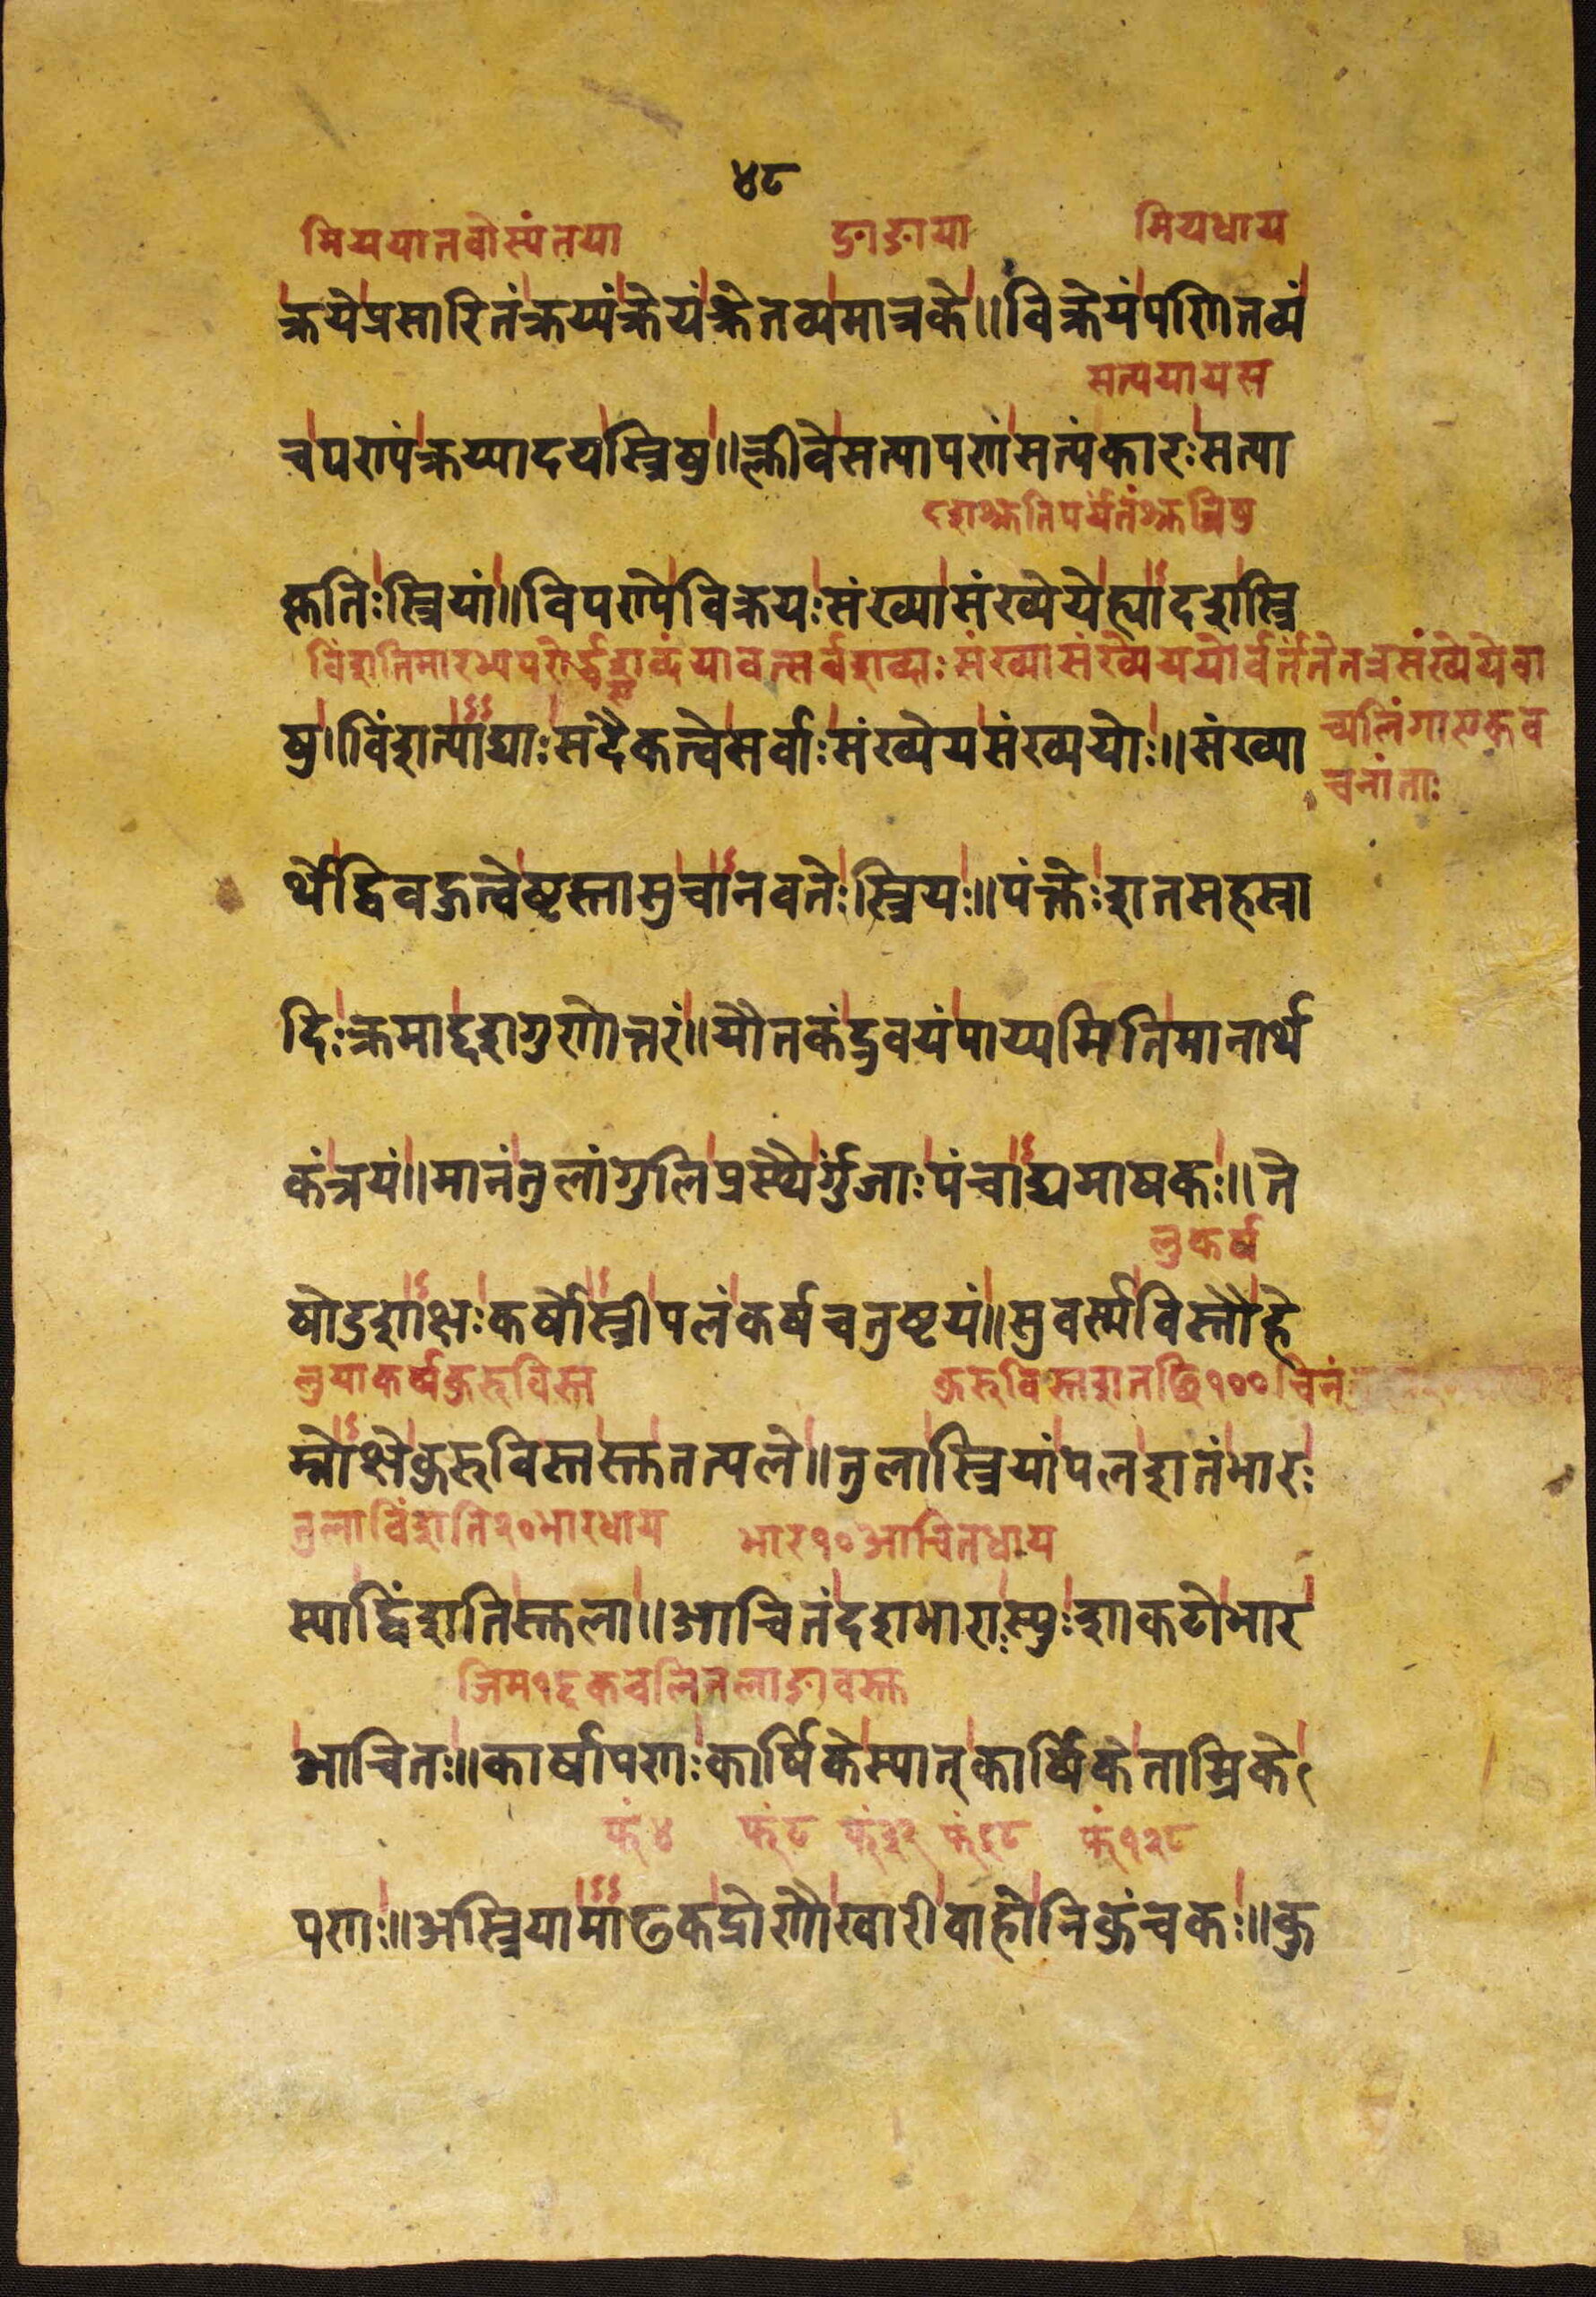 ४८
मिययानवोस्यंतया ङाङाया मियधाय
क्रयेप्रसारितंक्रय्यंक्रेयंक्रेतव्यमात्रके॥विक्रेयंपणितव्यं
सत्यययायस
चपण्यंक्रय्यादयस्त्रिषु॥क्लीवेसत्यापणंसत्यंकारःसत्या
कृतिःस्त्रियां॥विपण्येविक्रयःसंख्यासंख्येयेह्यादशस्त्रि
विंशतिमारभ्यपरार्द्धशब्दंयावत्सर्वशब्दाःसंख्यासंख्येयययोर्वर्तंतेतत्रसंख्येयेवा
षु॥विंशत्याद्याःसदैकत्वेसर्वाःसंख्येयसंख्ययोः॥संख्या
च्यलिंगाएकव
चनांताः
र्थेद्विवहुत्वेष्टस्तासुचानवतेःस्त्रियः॥पंक्तेःशतसहस्रा
दिःक्रमाद्दशगुणोत्तरं॥यौतकंद्रुवयंपाय्यमितिमानार्थ
कंत्रयं॥मानंतुलांगुलिप्रस्थैर्गुंजाःपंचाद्यमाषकः॥ते
लुकर्ष
षोडशाक्षःकर्षोस्त्रीपलंकर्षचतुष्टयं॥सुवर्स्मविस्तौहे
लुयाकर्षकुरुविस्त कुरुविस्तशतछि१००चिनं
म्नोक्षेकुरुविस्तस्तुतत्पले॥तुलास्त्रियांपलशतंभारः
तुलाविंशति२०भारधाय भार१०आचितधाय
स्याद्विंशतिस्तुला॥आचितंदशभाराःस्युःशाकटोभार
जिम१६कचलितलाङावस्त
आचितः॥कार्षापणःकार्षिकेस्यात्कार्षिकेताम्रिके
फं४ फं८ फं३२ फं६८ फं१२८
पणः॥अस्त्रियामाढकद्रोणौखारीवाहोनिकुंचकः॥कु